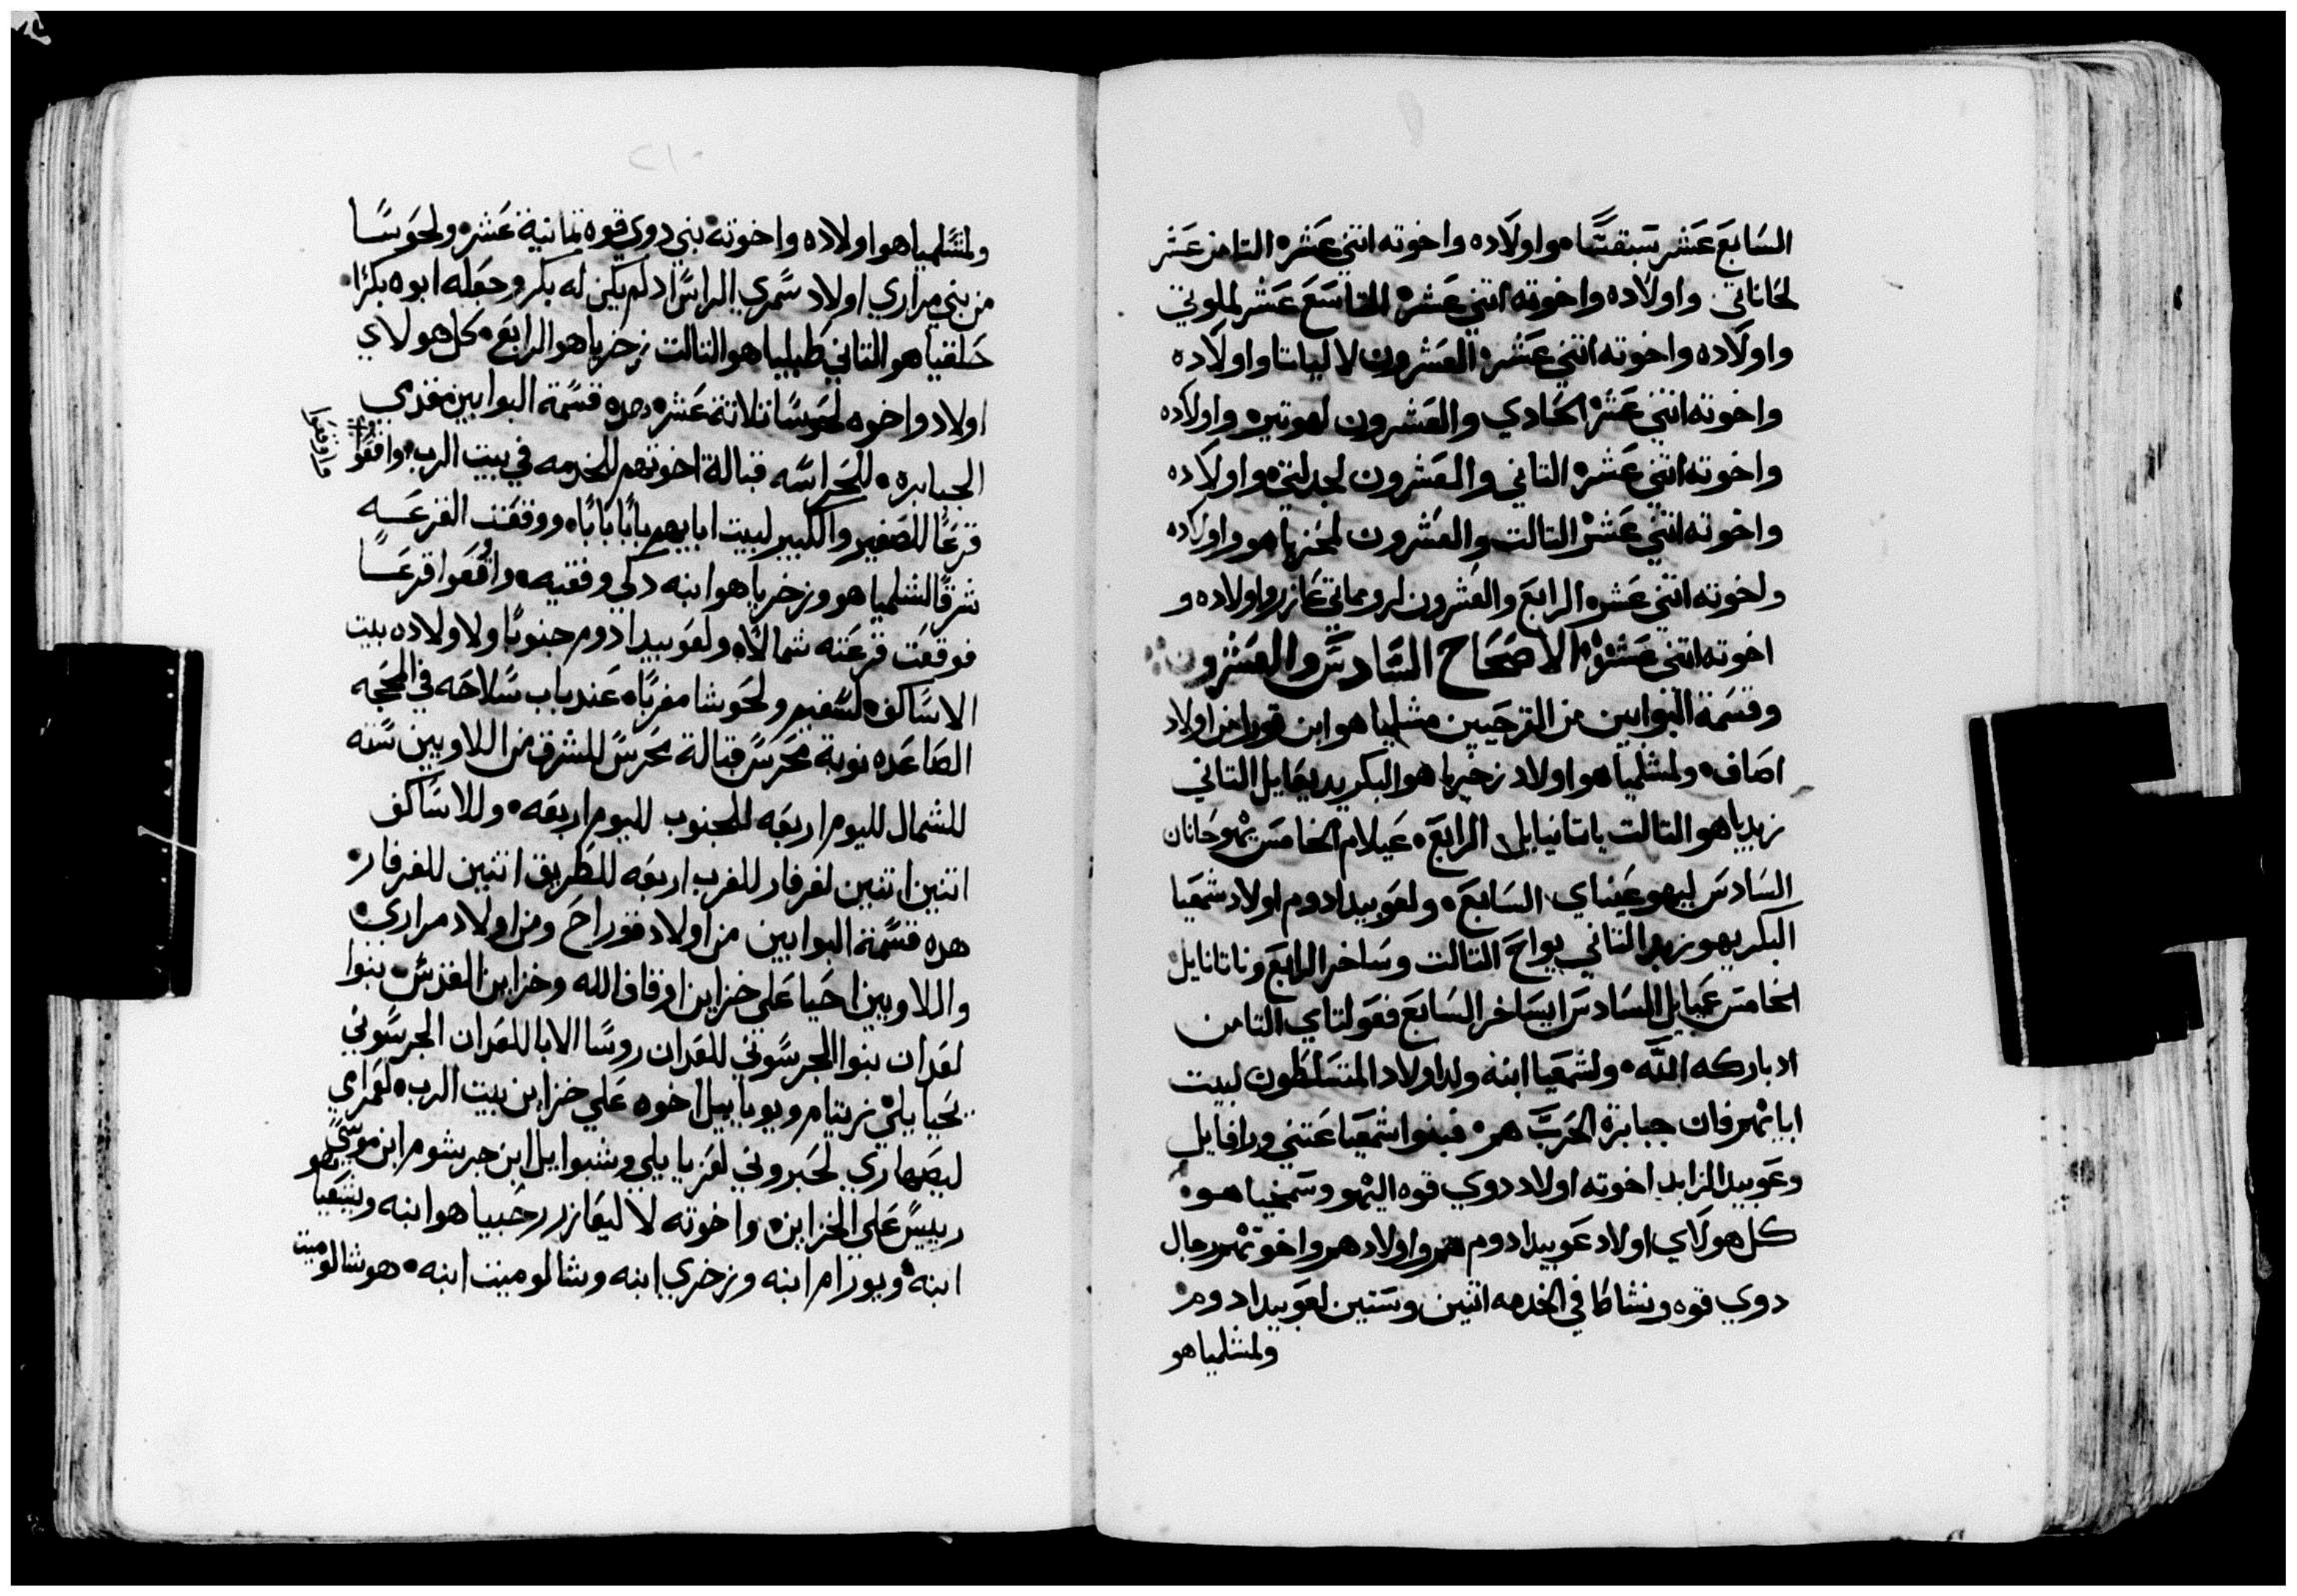 السابع عشر يشبقشا واولاده واخوته اتني عشره التامن عشر
لحاناني واولاده واخوته اتني عشره التاسع عشر لملوتي
واولاده واخوته اتني عشره العشرون لالياتا واولاده
واخوته اتني عشر الحادي والعشرون لهوتير واولاده
واخوته اتني عشره التاني والعشرون لجدلتي واولاده
واخوته اتني عشر التالت والعشرون لمحزياهو واولاده
واخوته اتني عشره الرابع والعشرون لروماتي عازر واولاده و
اخوته اتني عشره الاصحاح السادس والعشرون
وقسمة البوابين من القرحيين مشلمياهو ابن قورا من اولاد
اصاف ولمشلمياهو اولاد زخرياهو البكر يديعايل التاني
زبدياهو التالت ياتانيايل الرابع عيلام الخامس يهوحانان
السادس ليهوعيناي السابع ولعوبيد ادوم اولاد شمعيا
البكر يهوزبد التاني يواح التالت وساخر الرابع وناتانايل
الخامس عميايل السادس ايساخر السابع فعولتاي التامن
اد باركه الله ولشمعيا ابنه ولد اولاد المتسلطون لبيت
ابايهم فان جبابرة الحرب هم فبنوا شمعيا عتني ورافايل
وعوبيد الزابد اخوته اولاد دوي قوه اليهو وسمخياهو
كل هولاي اولاد عوبيد ادوم هم واولادهم واخوتهم رجال
دوي قوه ونشاطا في الخدمه اتنين وستين لعوبيد ادوم
ولمشلمياهو
ولمشلمياهو اولاده واخوته بني دوي قوه تمانية عشره ولحوسا
من بني مراري اولاد شمري الراس اد لم يكن له بكر وجعله ابوه بكرا
حلقيا هو التاني طبليا هو التالت زخريا هو الرابع كل هولاي
اولاد واخوه لحوسا تلاتة عشره هده قسمة البوابين مقدمي
الجبابره للحراسه قبالة اخوتهم للخدمه في بيت الرب واقعوا
فاوقعوا
قرعا للصغير والكبير لبيت ابايهم بابا بابا ووقعت القرعه
شرقا لشلمياهو وزخرياهو ابنه دكي وفقيه واوقعوا قرعا
فوقعت قرعته شمالا ولعوبيد ادوم جنوبا ولاولاده بيت
الاساكف لشفيم ولحوشا مغربا عند باب سلاحه في المحجه
الصاعده نوبة محرس قبالة محرس للشرق من اللاويين سته
للشمال لليوم اربعه للجنوب لليوم اربعه وللاساكف
اتنين اتنين لفرفار للغرب اربعه للطريق اتنين للفرفار
هده قسمة البوابين من اولاد قوراح ومن اولاد مراري
واللاويين احيا علي خزاين اوقاف الله وخزاين القدس بنوا
لعدان بنوا الجرسوني للعدان روسا الابا للعدان الجرسوني
يحيايلي زيتام ويويابيل اخوه علي خزاين بيت الرب لعمراي
ليصهاري لحبروني لعزيايلي وشبوايل ابن جرشوم ابن موسي هو
رييس علي الخزاين واخوته لاليعازر رحبياهو ابنه ويشعيا
ابنه ويورام ابنه وزخري ابنه وشالوميت ابنه هو شالوميت